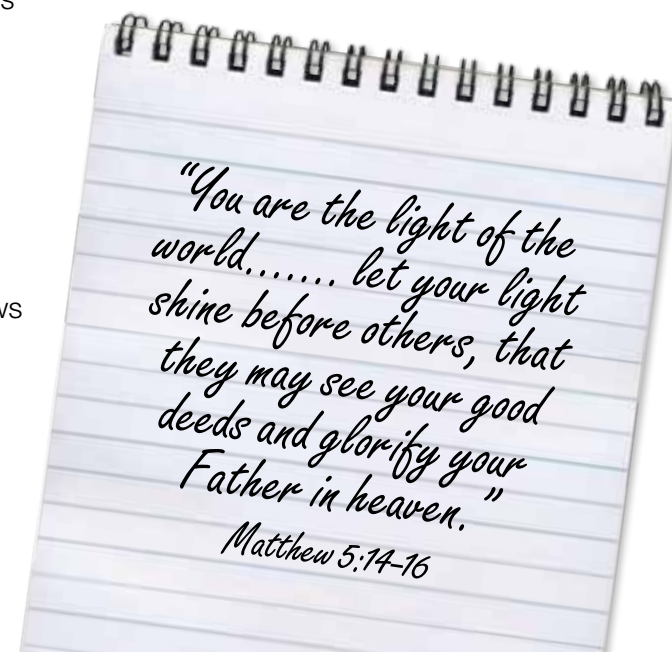 s
ws
“You are the light of the
world....... let your light
shine before others, that
they may see your good
deeds and glorify your
Father in heaven.”
Matthew 5:14-16